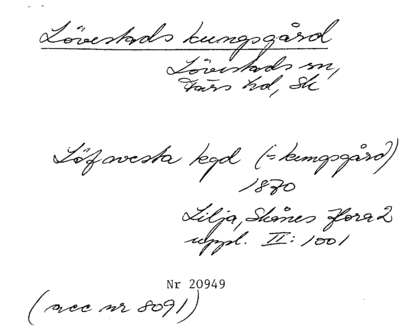 Lövestads kungsgård
Lövestads sn,
Färs hd, Sk
Löfavesta kgd (= kungsgård)
1870
Lilja, Skånes flora 2
uppl. II: 1001
Nr 20949
(acc nr 8091)